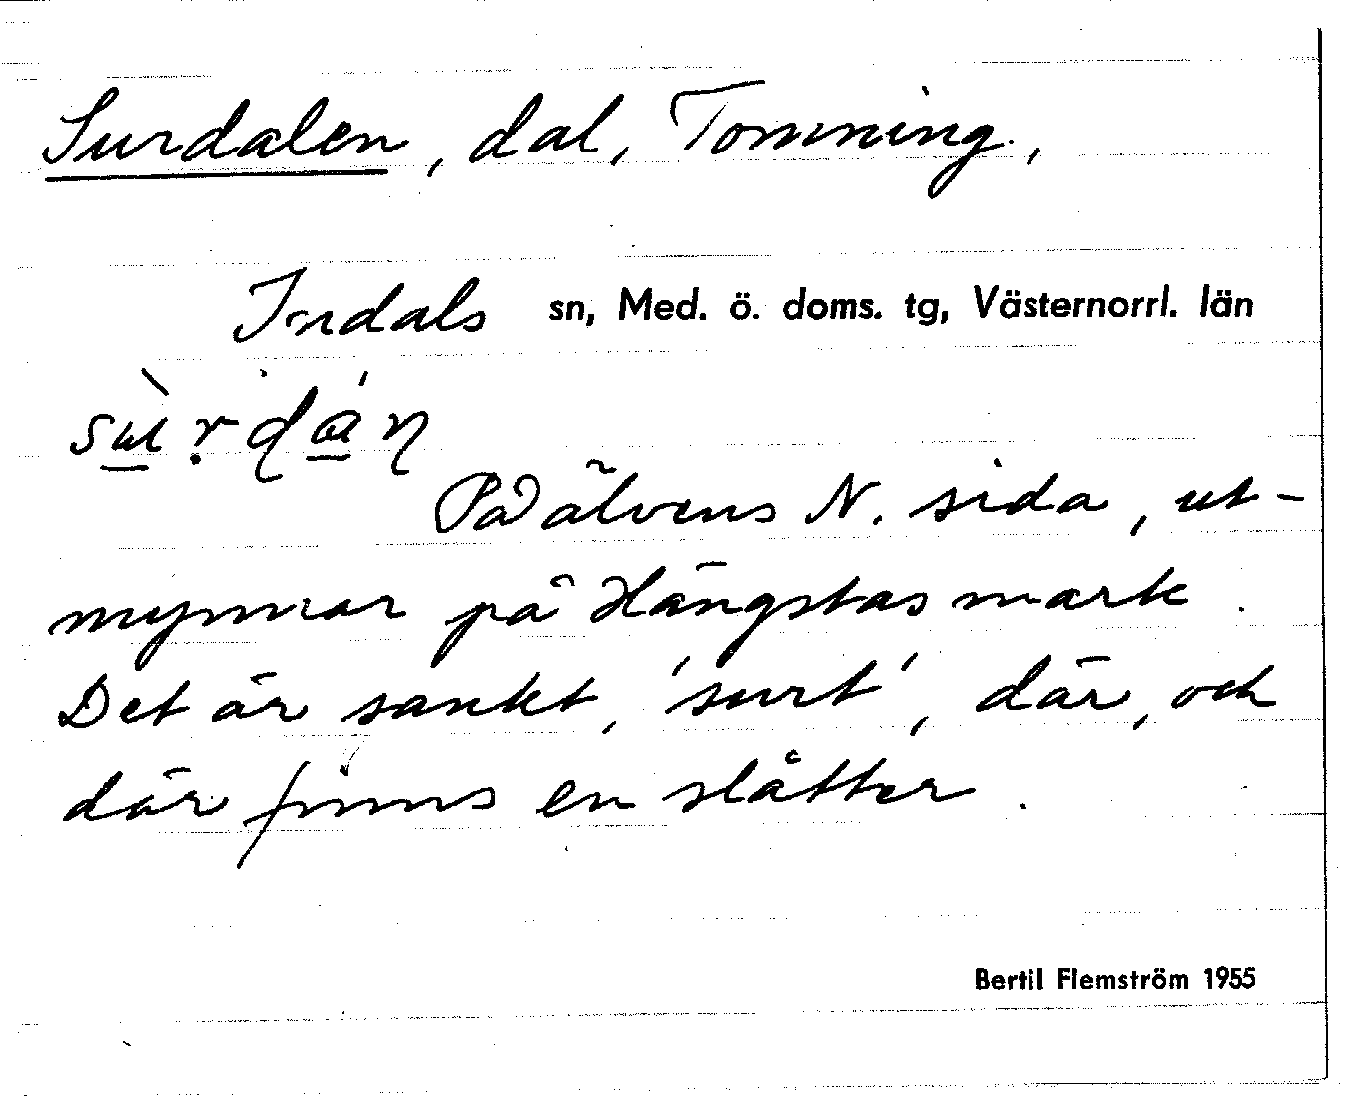 Surdalen, dal, Tomming.,
Indals sn, Med. ö. doms. tg, Västernorrl. län
På älvens N. sida, ut-
mynnar på Hängstas mark.
Det är sankt, 'surt', där, och
där finns en slåtter.
Bertil Flemström 1955